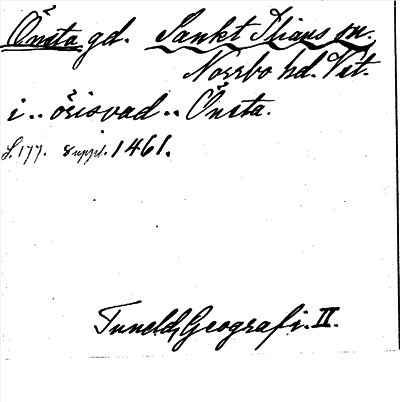 Önsta gd. Sankt Ilians sn.
Norrbo hd. Vst.
i .. örisvad .. Önsta.
S. 177. Suppl. 1461.
Tuneld, Geografi. II.